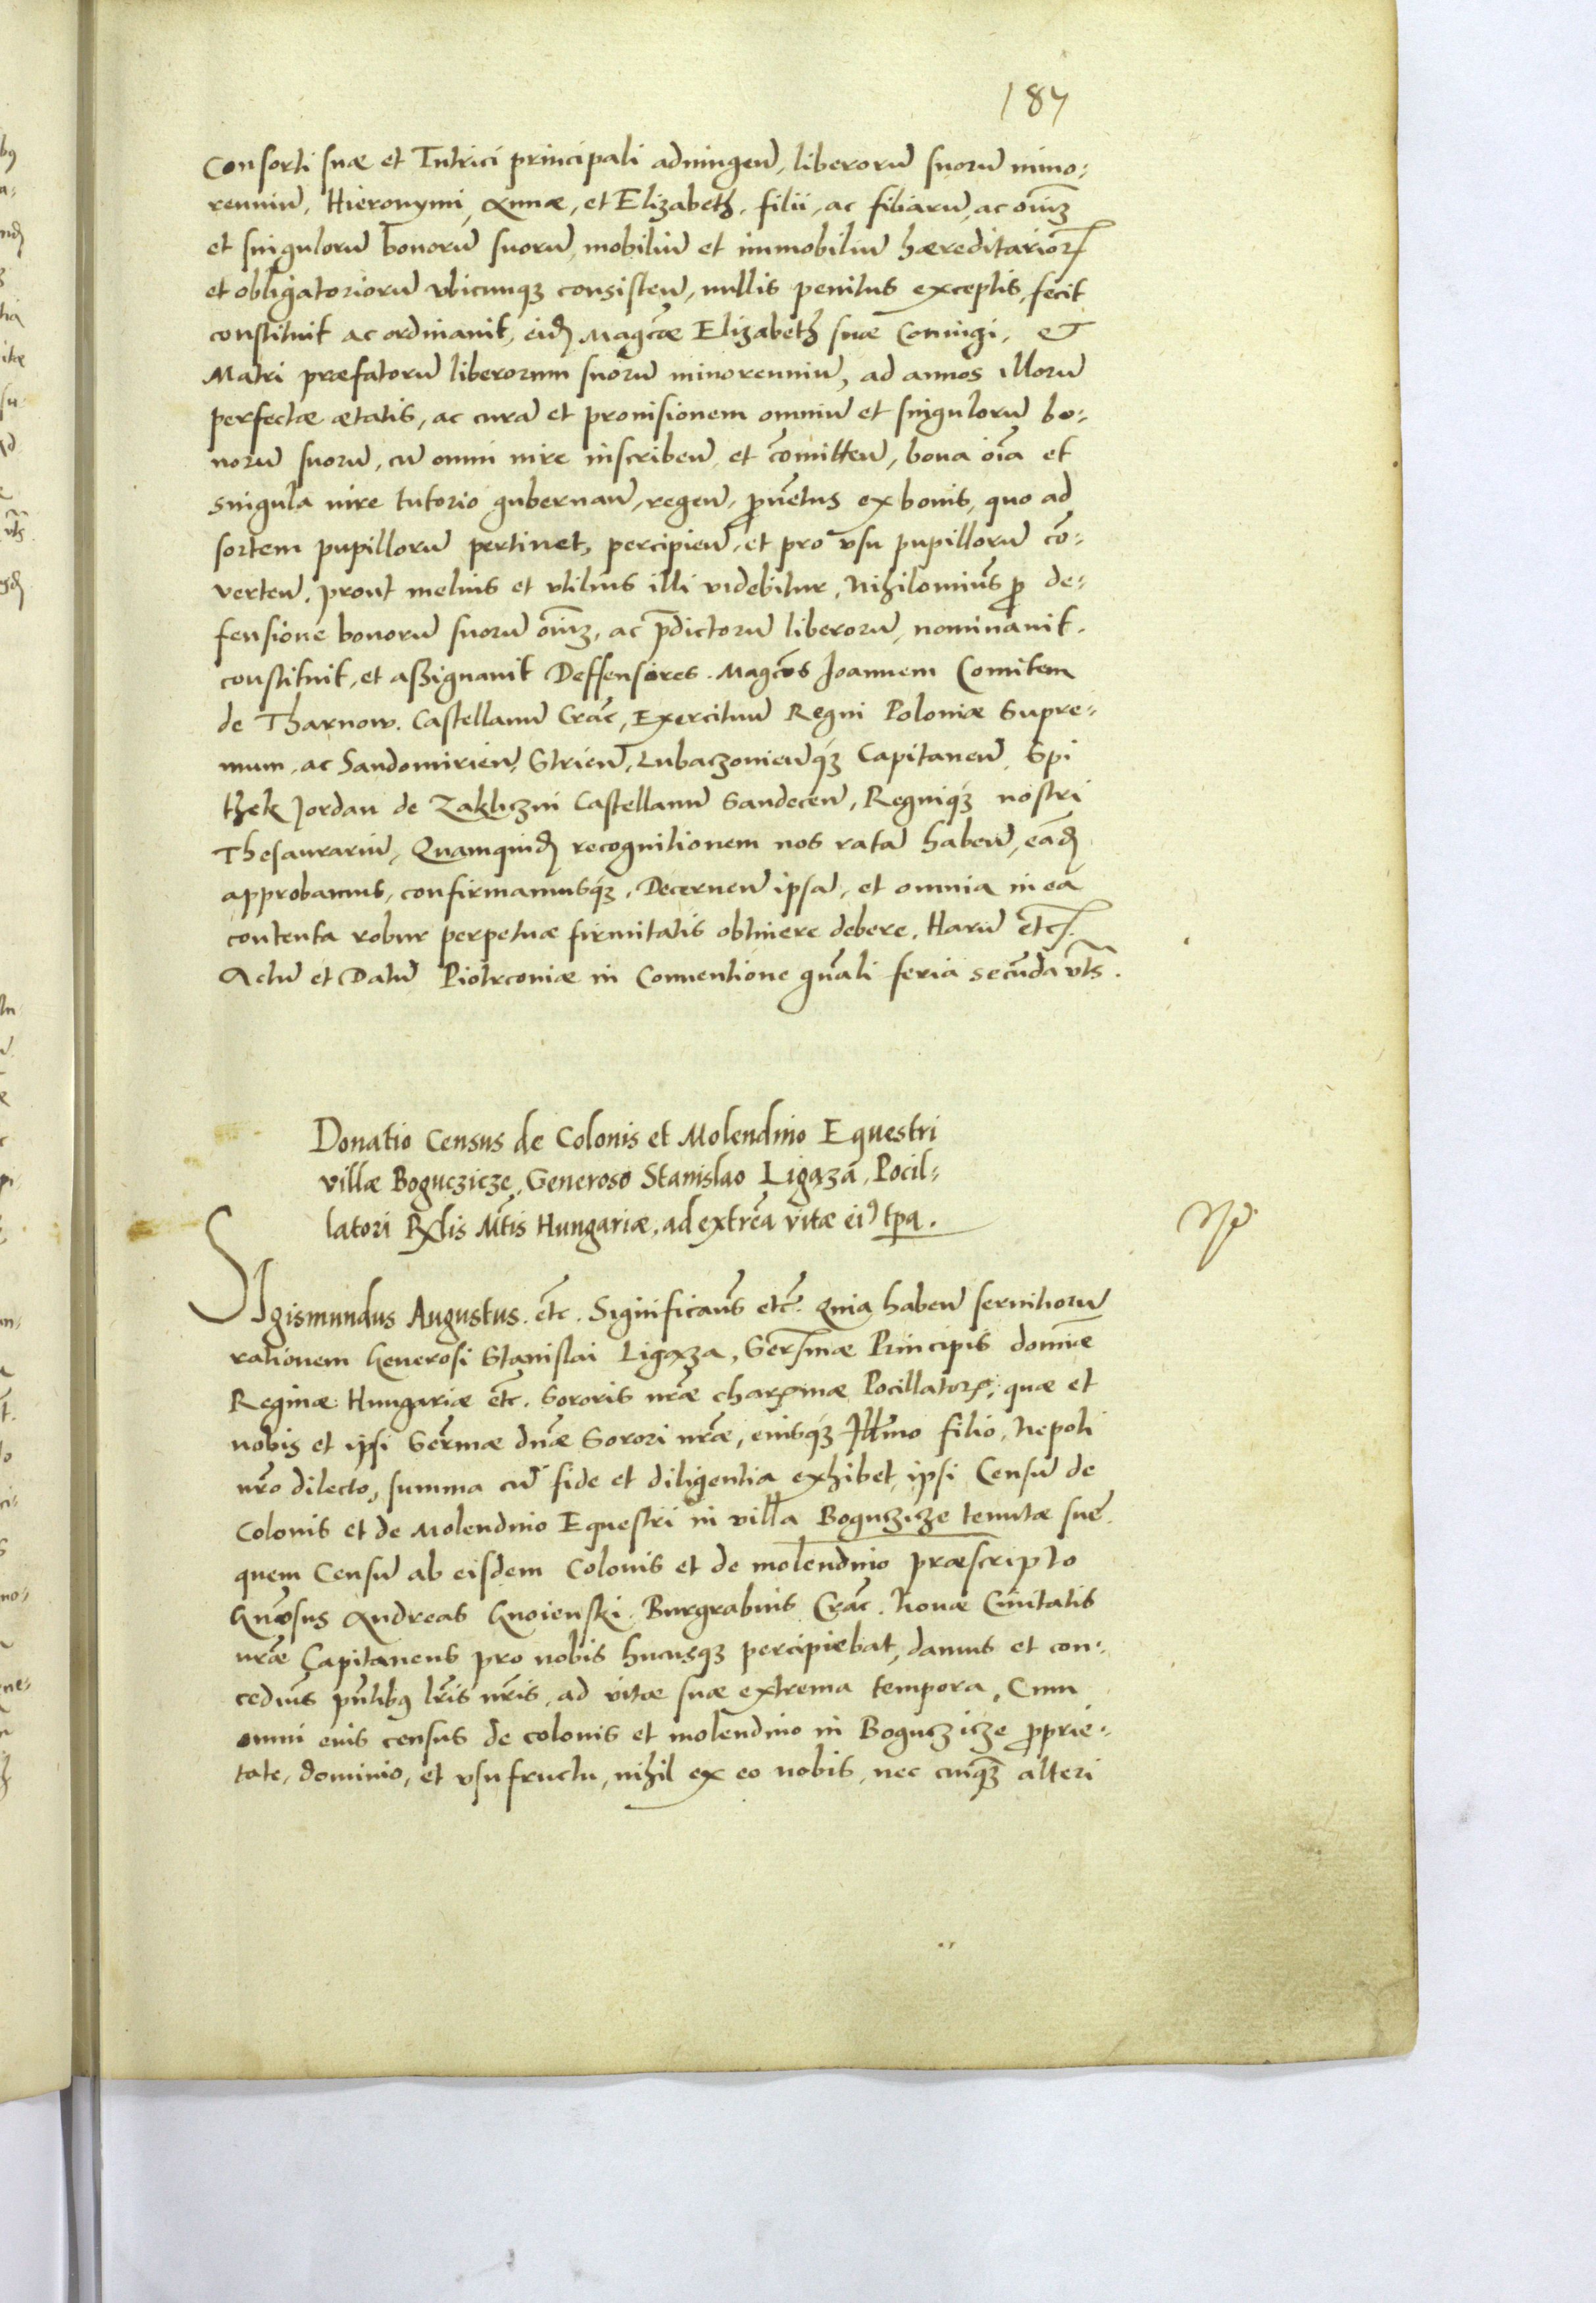 187
Consorti suæ et Tutrici principali adiungen̄, liberorū suorū mino:
renniū, Hieronymi, Annæ, et Elizabeth, filii, ac filiarū, ac oīuꝫ
et singulorū bonorū suorū, mobiliū et immobiliū hæreditarioꝝ
et obligatoriorū vbicunqꝫ consisten̄, nullis penitus exceptis, fecit
constituit ac ordinauit, eid Magcæ Elizabeth suæ Coniugi, et
Matri præfatorū liberorum suorū minorenniū, ad annos illorū
perfectæ ætatis, ac curā et prouisionem omniū et singulorū bo:
norū suorū, cū omni iure inscriben̄, et cōmitten̄, bona oīa et
singula iure tutorio gubernan̄, regen̄, ꝓuētus ex bonis, quo ad
sortem pupillorū pertinet, percipien̄, et pro vsu pupillorū cō:
verten̄, prout melius et vtilius illi videbitur, Nihilomin̄s ꝓ de:
fensione bonorū suorū oīuꝫ, ac p̄dictorū liberorū, nominauit,
constituit, et assignauit Deffensores. Magcos Joannem Comitem
de Tharnow. Castellanū Crac̄, Exercituū Regni Poloniæ Supre:
mum, ac Sandomirien̄, Strien̄, Lubaczouien̄qꝫ Capitaneū, Spi
thek Jordan de Zakliczni Castellanū Sandecen̄, Regniqꝫ nostri
Thesaurariū, Quamquid recognitionem nos ratā haben̄, eād
approbamus, confirmamusqꝫ, Decernen̄ ipsā, et omnia in ea
contenta robur perpetuæ firmitatis obtinere debere. Harū etc̄.
Actū et Datū Piotrcouiæ in Conuentione gn̄ali feria secūda vts̄.
Donatio Census de Colonis et Molendino Equestri
villæ Boguczicze, Generoso Stanislao Ligęza, Pocil:
latori Rxlis Mt̄is Hungariæ, ad extrēa vitæ eiꝰ tp̄a.
Sigismundus Augustus. etc̄. Significam̄s etc̄. Quia haben̄ seruitiorū
rationem Generosi Stanislai Ligęza, Ser̄mæ Principis domīæ
Reginæ Hungariæ etc̄. Sororis nr̄æ charmæ Pocillatoris, quæ et
nobis et ipsi Ser̄mæ dnæ Sorori nr̄æ, eiusqꝫ Illmo filio, Nepoti
nr̄o dilecto, summa cū fide et diligentia exhibet, ipsi Censū de
Colonis et de Molendino Equestri in villa Boguczicze tenutæ suæ,
quem Censū ab eisdem Colonis et de molendino præscripto
Gn̄osus Andreas Gnoienski. Burgrabius Crac̄. Nouæ Ciuitatis
nr̄æ Capitaneus pro nobis hucusqꝫ percipiebat, damus et con:
cedim̄s pn̄tibꝰ lr̄is nr̄is, ad vitæ suæ extrema tempora, Cum
omni eius census de colonis et molendino in Boguczicze ꝓprie:
tate, dominio, et vsufructu, nihil ex eo nobis, nec cuiqꝫ alteri